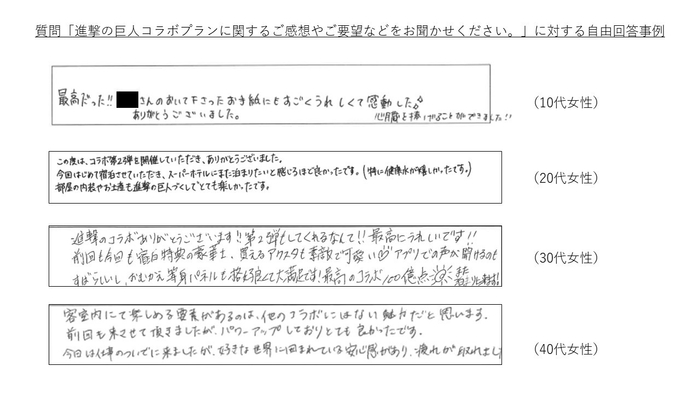 質問「進撃の巨人コラボプランに関するご感想やご要望などをお聞かせください。」に対する自由回答事例
最高だった!! さんのおいて下さったお手紙にもすごくうれしくて感動した。
ありがとうございました。
心臓を捧げることができました!!
(10代女性)
この度は、コラボ第2弾を開催していただき、ありがとうございました。
今回はじめて宿泊させていただき、スーパーホテルにまた泊まりたいと感じるほど良かったです。(特に健康水が嬉しかったです。)
部屋の内装やお土産も進撃の巨人づくしでとても楽しかったです。
(20代女性)
進撃のコラボありがとうございます!!第2弾もしてくれるなんて!!最高にうれしいです!!
前回も今回も宿泊特典の豪華さ、買えるアクスタも素敵で可愛い アプリでの声が聞けるのも
すばらしいし、おむかえ等身パネルも 大満足です!最高のコラボ100億点
(30代女性)
客室内にて楽しめる要素があるのは、他のコラボにはない魅力だと思います。
前回も来させて頂きましたが、パワーアップしておりとても良かったです。
今日は仕事のついでに来ましたが、好きな世界に囲まれている安心感があり、疲れが取れまし
(40代女性)